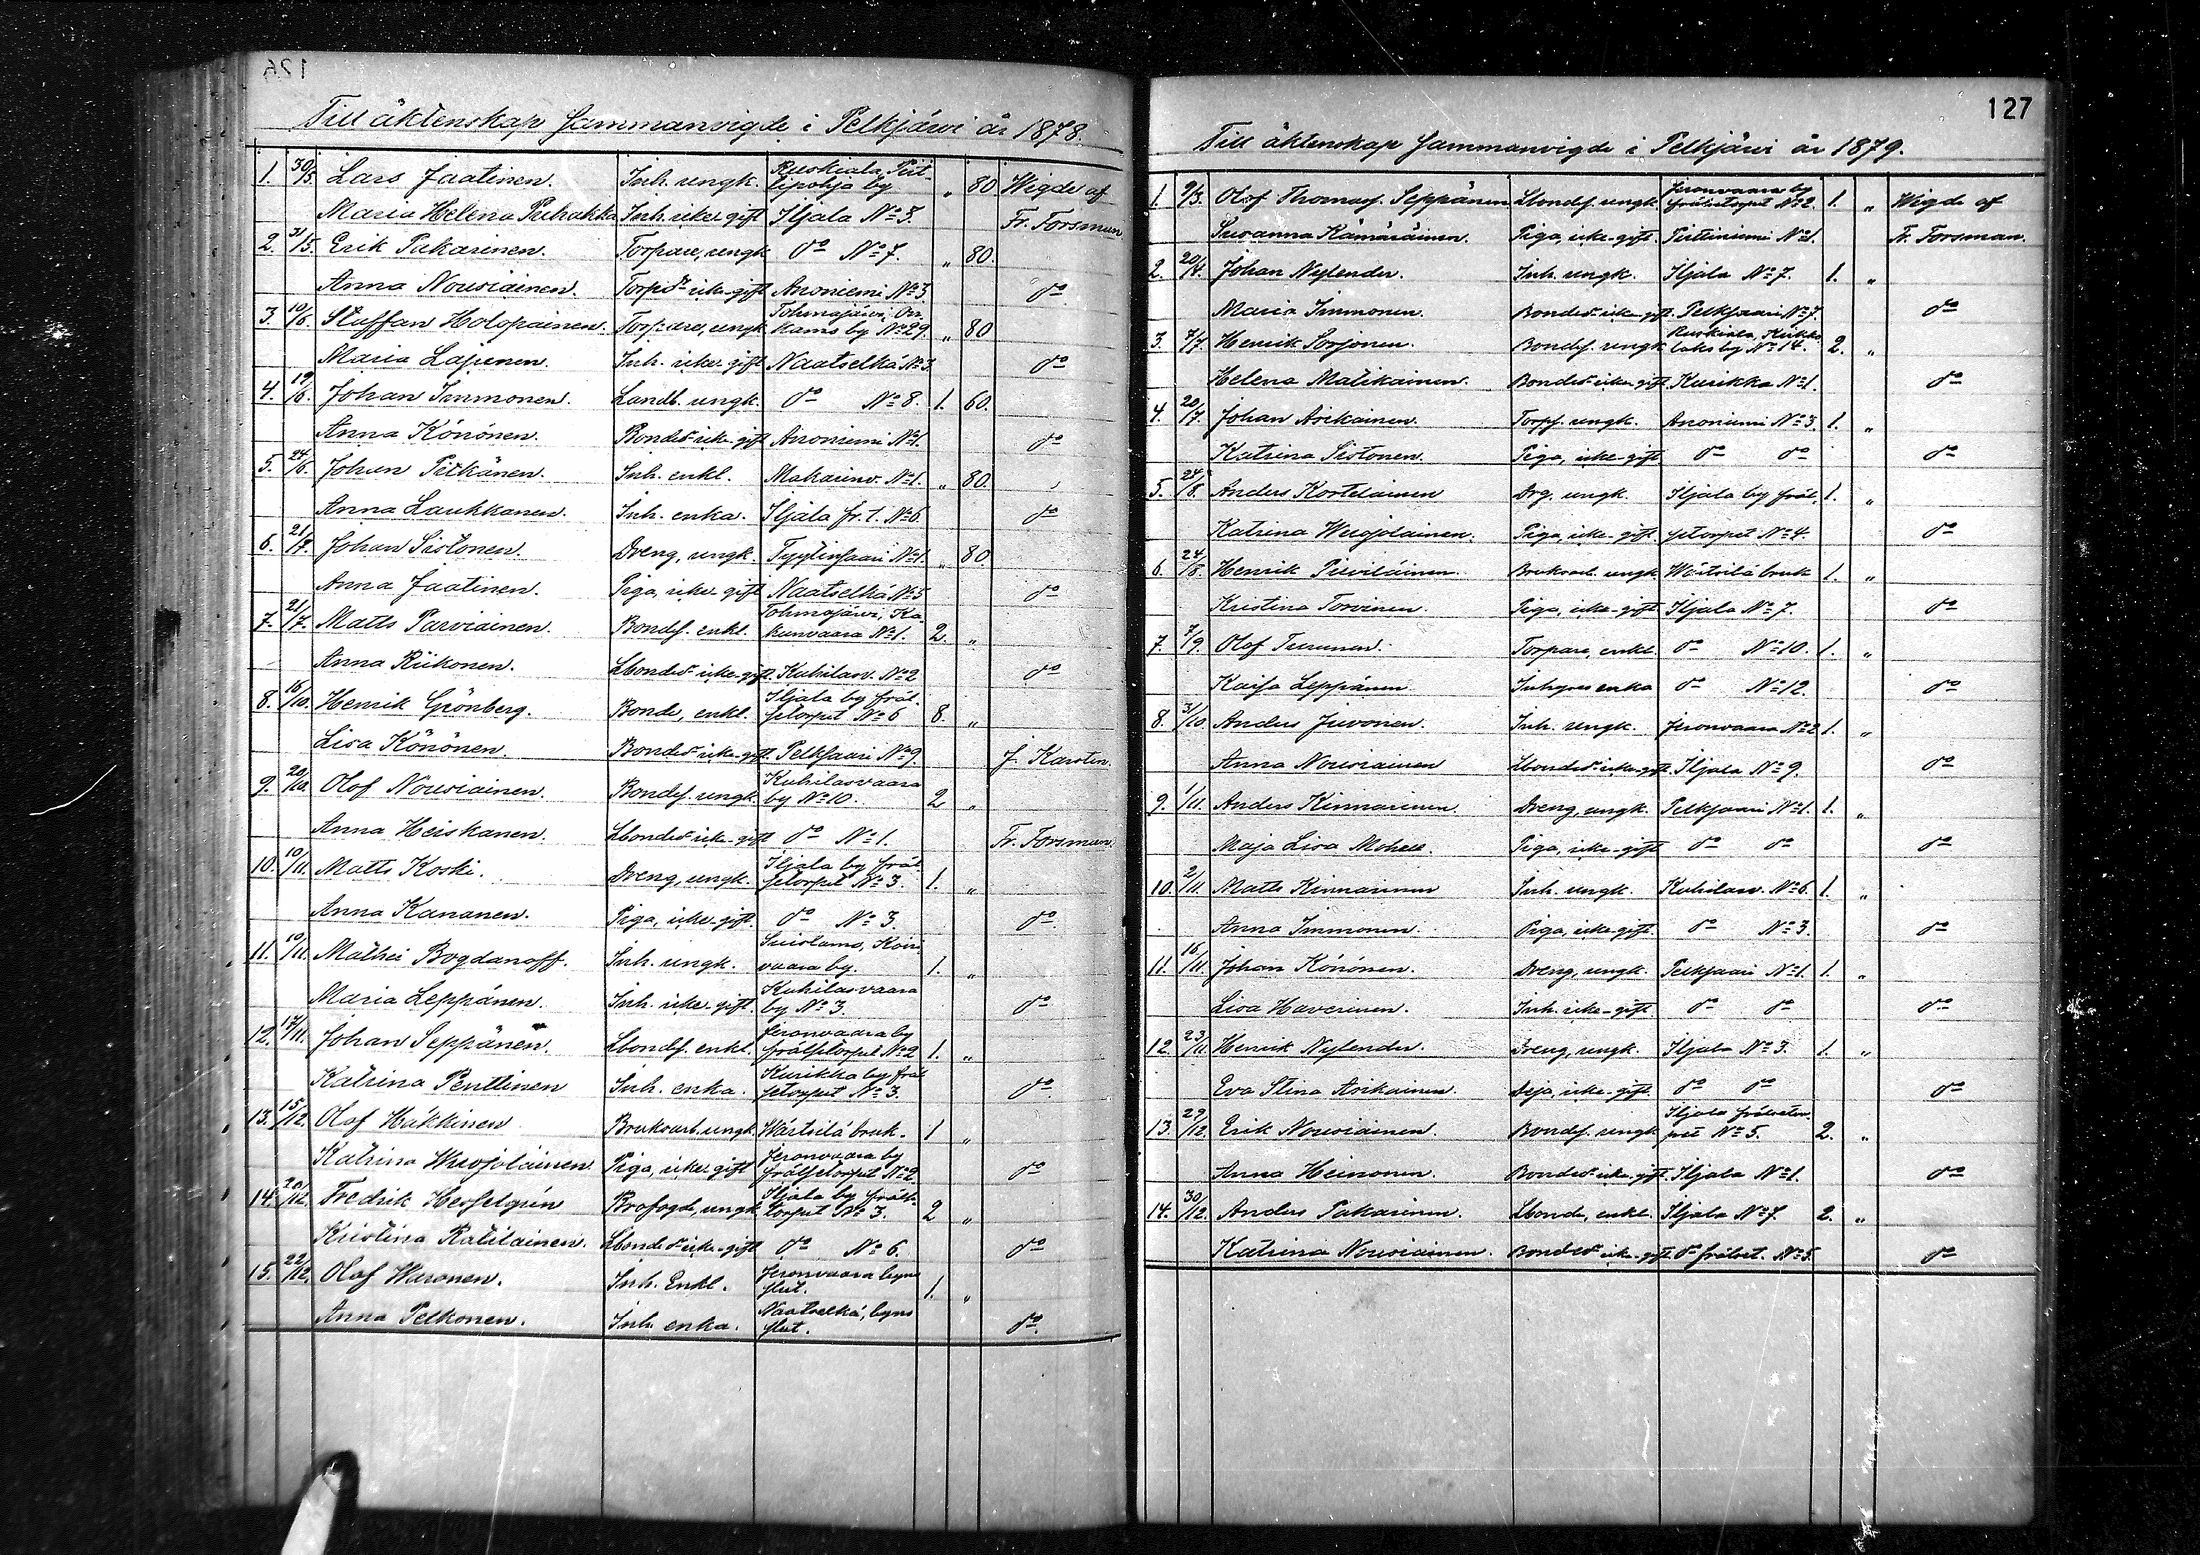 126
Till äktenskap Sammanvigde i Pelkjärvi år 1878.
1. 30/5. Lars Jaatinen. Inh. ungk. Ruskiala, Pirttipohja by „ 80 Wigde af
Maria Helena Puhakka Inh. icke gift Iljala No 3. Fr. Forsman
2. 31/5. Erik Pakarinen. Torpare, ungk do No 7. „ 80.
Anna Nousiainen. Torpdr icke-gift Anoniemi No 3 do
3. 10/6. Staffan Holopainen. Torpare, ungk. Tohmajärvi, Onkamo by No 29. „ 80
Maria Lajunen. Inh. icke-gift Naatselkä No 3 do
4. 19/6. Johan Immonen. Landb. ungk. do No 8. 1. 60.
Anna Könönen. Bondedr icke-gift Anoniemi No 1. do
5. 24/6. Johan Pitkänen. Inh. enkl. Makarinv. No 1. „ 80.
Anna Laukkanen. Inh. enka. Iljala fr. t. No 6. do
6. 21/7. Johan Sistonen. Dreng, ungk. Tyytinsaari No 1. „ 80
Anna Jaatinen. Piga, icke-gift Naatselkä No 5 do
7. 21/7. Matts Parviainen. Bondes. enkl. Tohmajärvi, Kakunvaara No 1. 2. „
Anna Riikonen. Lbondedr icke-gift. Kuhilasv. No 2 do
8. 16/10. Henrik Grönberg. Bonde, enkl. Iljala by frälsetorpet No 6 8. „
Lisa Könönen. Bondedr icke-gift. Pelkjaari No 9. J. Karsten.
9. 20/10. Olof Nousiainen. Bondes. ungk. Kuhilasvaara by No 10. 2 „
Anna Heiskanen. Lbondedr icke-gift do No 1. Fr. Forsman.
10. 10/11. Matts Koski. Dreng, ungk. Iljala by frälsetorpet No 3. 1. „
Anna Kananen. Piga, icke-gift. do No 3. do
11. 10/11. Mathei Bogdanoff. Inh. ungk. Suistamo, Koirivaara by. 1. „
Maria Leppänen. Inh. icke-gift. Kuhilasvaara by No 3. do
12. 17/11. Johan Seppänen. Lbondes. enkl. Jeronvaara by frälsetorpet No 2 1. „
Katrina Penttinen Inh. enka. Kurikka by frälsetorpet No 3. do
13. 15/12. Olof Häkkinen Bruksarb. ungk. Wärtsilä bruk. 1 „
Katrina Wesojolainen. Piga, icke-gift Jeronvaara by frälsetorpet No 2 do
14. 20/12. Fredrik Hesselgrén Brofogde, ungk. Iljala by frälsetorpet No 3. 2 „
Kristina Ratilainen. Lbondedr icke-gift do No 6. do
15. 22/12. Olof Waronen. Inh. Enkl. Jeronvaara byns slut. 1. „
Anna Pelkonen. Inh. enka. Naatselkä, byns slut. do
127
Till äktenskap Sammanvigde i Pelkjärvi år 1879.
1. 9/3. Olof Thomass. Seppänen Lbondes. ungk. Jeronvaara by frälsetorpet No 2. 1. „ Wigde af
Susanna Kämäräinen. Piga, icke-gift. Pirttiniemi No 1. Fr. Forsman.
2. 20/4. Johan Nylender. Inh. ungk. Iljala No 7. 1. „
Maria Immonen. Bondedr icke-gift. Pelkjaari No 7. do
3. 7/7. Henrik Sorjonen. Bondes. ungk. Ruskiala, Kirkkolaks by No 14. 2. „
Helena Matikainen. Bondedr icke-gift. Kurikka No 1. do
4. 20/7. Johan Asikainen. Torps. ungk. Anoniemi No 3. 1. „
Katrina Sistonen. Piga, icke-gift do do do
5. 24/8. Anders Kortelainen Drg. ungk. Iljala by fräl- 1. „
Katrina Wesojolainen. Piga, icke-gift. setorpet No 4. do
6. 24/8. Henrik Pieviläinen. Bruksarb. ungk. Wärtsilä bruk 1. „
Kristina Torvinen. Piga, icke-gift Iljala No 7. do
7. 7/9. Olof Turunen. Torpare, enkl. do No 10. 1. „
Kaisa Leppänen Inhyses enka do No 12. do
8. 3/10. Anders Juvonen. Inh. ungk. Jeronvaara No 2 1. „
Anna Nousiainen Lbondedr icke-gift. Iljala No 9. do
9. 1/11. Anders Kinnarinen. Dreng, ungk. Pelkjaari No 1. 1. „
Maja Lisa Mohell. Piga, icke-gift do do do
10. 2/11. Matts Kinnarinen Inh. ungk. Kuhilasv. No 6. 1. „
Anna Immonen Piga, icke-gift. do No 3. do
11. 16/11. Johan Könönen. Dreng, ungk. Pelkjaari No 1. 1. „
Lisa Haverinen. Inh. icke-gift. do do do
12. 23/11. Henrik Nylender. Dreng, ungk. Iljala No 3. 1. „
Eva Stina Asikainen. Deja, icke-gift. do do do
13. 29/12. Erik Nousiainen. Bondes. ungk Iljala frälsetorpet No 5. 2. „
Anna Heinonen. Bondedr icke-gift. Iljala No 1. do
14. 30/12. Anders Pakarinen. Lbonde, enkl. Iljala No 7. 2. „
Katrina Nousiainen. Bondedr icke-gift. do frälset. No 5. do